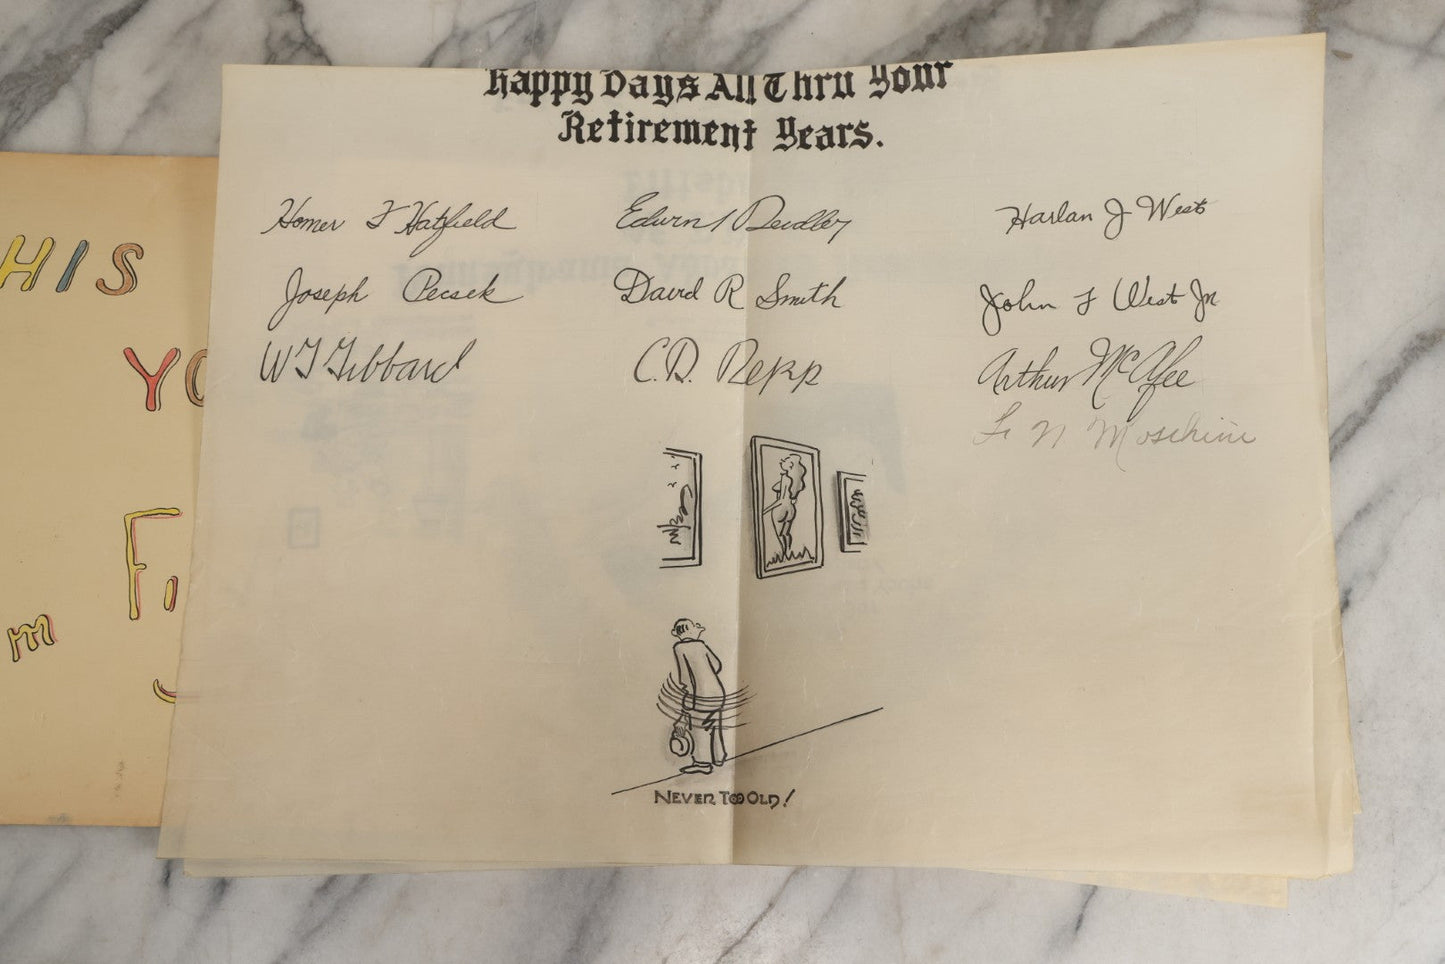 Happy Days All Thru Your
Retirement Years.
Homer F Hatfield
Edwin
Harlan J West
Joseph Pecsek
David R Smith
John F West Jr
W F Gibbard
C. D. Repp
Arthur McAfee
Moschini
Never Too Old!
HIS
YO
Fi
m